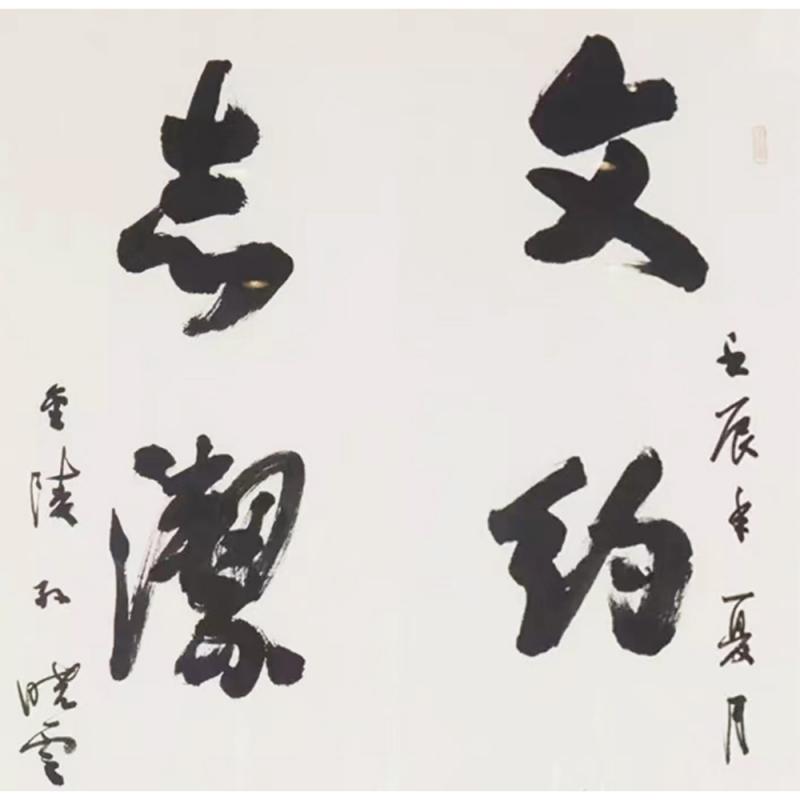 壬辰年夏月
文约
志潔
金陵孙晓云